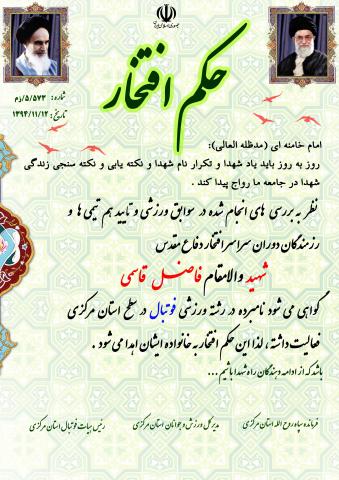 جمهوری اسلامی ایران
حکم افتخار
شماره: ۵/۵۷۳/ذم
تاریخ: ۱۳۹۴/۱۱/۱۲
امام خامنه ای (مدظله العالی):
روز به روز باید یاد شهدا و تکرار نام شهدا و نکته یابی و نکته سنجی زندگی
شهدا در جامعه ما رواج پیدا کند .
نظر به بررسی های انجام شده در سوابق ورزشی و تایید هم تیمی ها و
رزمندگان دوران سراسر افتخار دفاع مقدس
شهید والامقام فاضل قاسمی
گواهی می شود نامبرده در رشته ورزشی فوتبال در سطح استان مرکزی
فعالیت داشته ، لذا این حکم افتخار به خانواده ایشان اهدا می شود .
باشد که از ادامه دهندگان راه شهدا باشیم...
فرمانده سپاه روح الله استان مرکزی
مدیر کل ورزش و جوانان استان مرکزی
رئیس هیات فوتبال استان مرکزی